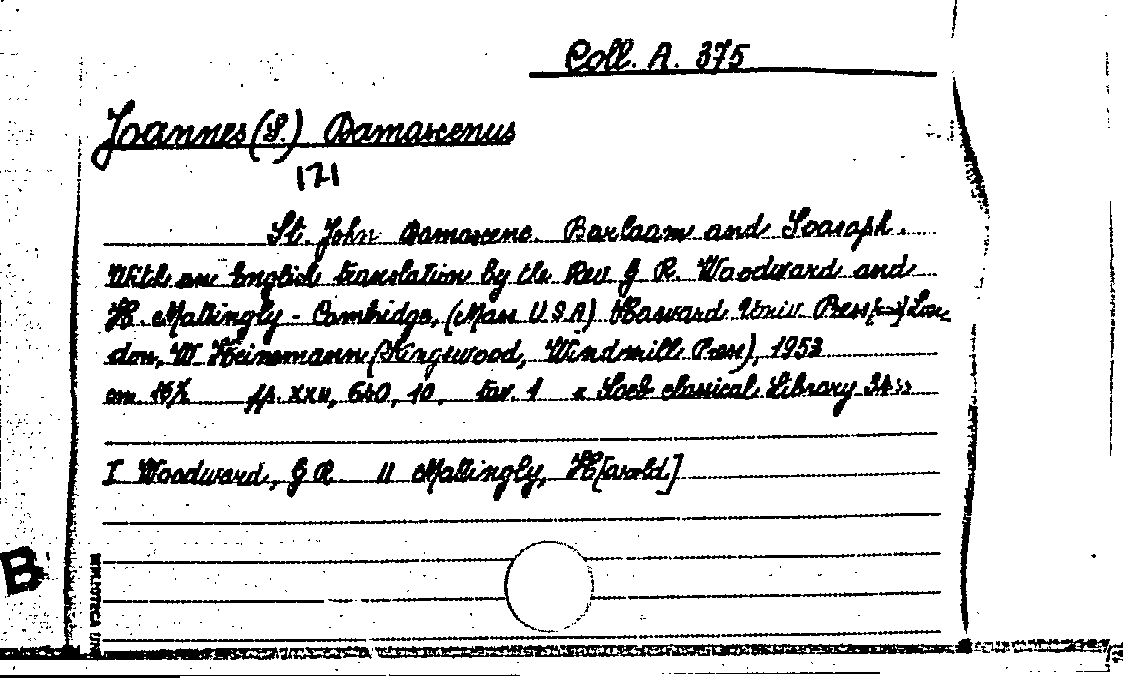 Coll. A. 375
Joannes (S.) Damascenus
171
St. John Damascene. Barlaam and Ioasaph.
With an English translation by the Rev G R. Woodward and
H. Mattingly - Cambridge, (Mass USA) Harvard Univ Press [—] Lon
don, W. Heinemann (Kingswood, Windmill Press), 1953
cm 16½ pp. XXII, 640, 10, tav. 1 « Loeb classical Library 34»
I Woodward, G R. II Mattingly, H[arold]
B
BIBLIOTECA UN